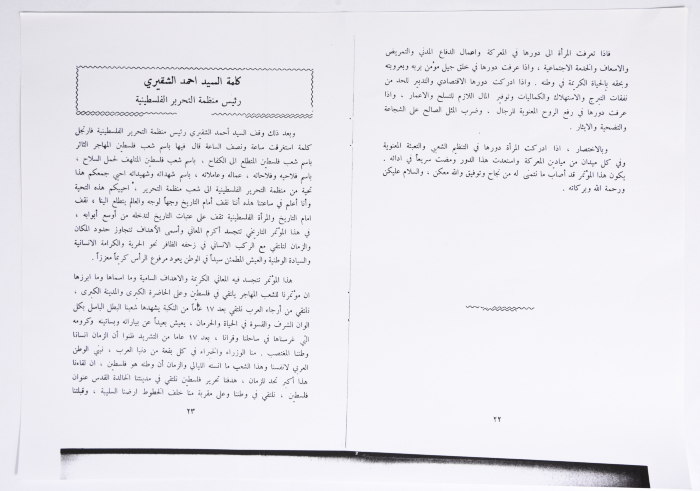 فاذا تعرفت المرأة الى دورها في المعركة واعمال الدفاع المدني والتمريض
والاسعاف والخدمة الاجتماعية ، واذا عرفت دورها في خلق جيل مؤمن بربه وبعروبته
وبحقه بالحياة الكريمة في وطنه . واذا ادركت دورها الاقتصادي والتدبير للحد من
نفقات التبرج والاستهلاك والكماليات وتوفير المال اللازم للتسلح والاعمار . واذا
عرفت دورها في رفع الروح المعنوية للرجال . وضرب المثل الصالح على الشجاعة
والتضحية والايثار .
وبالاختصار ، اذا ادركت المرأة دورها في التنظيم الشعبي والتعبئة المعنوية
وفي كل ميدان من ميادين المعركة واستعدت لهذا الدور ومضت سريعاً في ادائه .
يكون هذا المؤتمر قد أصاب ما نتمنى له من نجاح وتوفيق والله معكن ، والسلام عليكن
ورحمة الله وبركاته .
٢٢
كلمة السيد احمد الشقيري
رئيس منظمة التحرير الفلسطينية
وبعد ذلك وقف السيد أحمد الشقيري رئيس منظمة التحرير الفلسطينية فارتجل
كلمة استغرقت ساعة ونصف الساعة قال فيها باسم شعب فلسطين المهاجر الثائر
باسم شعب فلسطين المتطلع الى الكفاح ، باسم شعب فلسطين المتلهف لحمل السلاح ،
باسم فلاحيه وفلاحاته ، عماله وعاملاته ، باسم شهدائه وشهيداته احيي جمعكم هذا
تحية من منظمة التحرير الفلسطينية الى شعب منظمة التحرير ، أحييكم هذه التحية
وأنا أعلم في ساعتنا هذه أننا نقف أمام التاريخ وجهاً لوجه والعالم يتطلع الينا ، نقف
امام التاريخ والمرأة الفلسطينية تقف على عتبات التاريخ لتدخله من أوسع أبوابه ،
في هذا المؤتمر التاريخي تتجسد أكرم المعاني وأسمى الأهداف تتجاوز حدود المكان
والزمان لتلتقي مع الركب الانساني في زحفه الظافر نحو الحرية والكرامة الانسانية
والسيادة الوطنية والعيش المطمئن سيداً في الوطن يعود مرفوع الرأس كريماً معززاً .
هذا المؤتمر تتجسد فيه المعاني الكريمة والاهداف السامية وما اسماها وما ابرزها
ان مؤتمرنا للشعب المهاجر يلتقي في فلسطين وعلى الحاضرة الكبرى والمدينة الكبرى ،
نلتقي من أرجاء العرب نلتقي بعد ١٧ عاماً من النكبة يشهدها شعبنا البطل الباسل بكل
الوان الشرف والقسوة في الحياة والحرمان ، يعيش بعيداً عن بياراته وبساتينه وكرومه
التي غرسناها في ساحلنا وقرانا ، بعد ١٧ عاما من التشريد ظنوا أن الزمان انسانا
وطننا المغتصب . منا الوزراء والخبراء في كل بقعة من دنيا العرب ، نبني الوطن
العربي لانفسنا وهذا الشعب ما انسته الليالي والزمان أن وطنه هو فلسطين ، ان لقاءنا
هذا أكبر تحد للزمان ، هدفنا تحرير فلسطين نلتقي في مدينتنا الخالدة القدس عنوان
فلسطين ، نلتقي في وطننا وعلى مقربة منا خلف الخطوط ارضنا السليبة ، وقبلتنا
٢٣